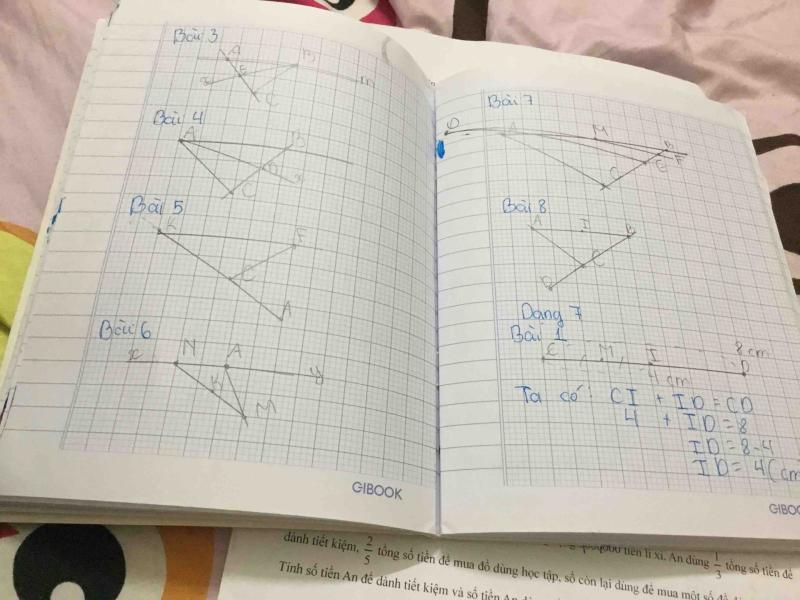 Bài 3
A
B
E
x
m
C
Bài 4
A
B
D
x
C
Bài 5
K
F
E
A
Bài 6
x
N
A
y
K
M
GIBOOK
Bài 7
D
A
M
B
E
F
C
Bài 8
A
I
B
C
D
Dạng 7
Bài 1
C
M
I
8 cm
D
4 cm
Ta có: CI + ID = CD
4 + ID = 8
ID = 8-4
ID = 4 (cm
GIBOO
tiền lì xì. An dùng 1/3 tổng số tiền để
dành tiết kiệm, 2/5 tổng số tiền để mua đồ dùng học tập, số còn lại dùng để mua một số
Tính số tiền An để dành tiết kiệm và số tiền An